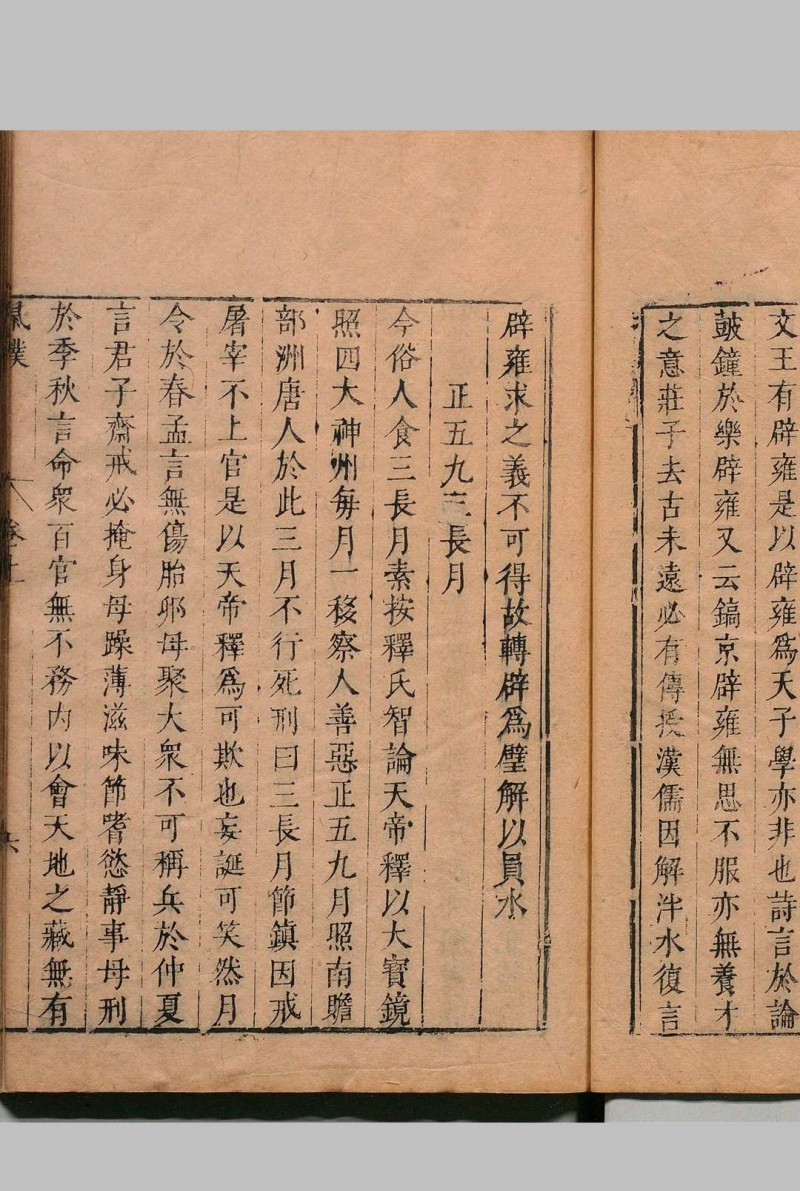 文王有辟雍是以辟雍爲天子學亦非也詩言於論
皷鐘於樂辟雍又云鎬京辟雍無思不服亦無養才
之意莊子去古未遠必有傳授漢儒因解泮水復言
辟雍求之義不可得故轉辟爲璧解以員水
正五九三長月
今俗人食三長月素按釋氏智論天帝釋以大寳鏡
照四大神州每月一移察人善惡正五九月照南贍
部洲唐人於此三月不行死刑曰三長月節鎮因戒
屠宰不上官是以天帝釋爲可欺也妄誕可笑然月
令於春孟言無傷胎卵毋聚大衆不可稱兵於仲夏
言君子齋戒必掩身毋躁薄滋味節嗜慾靜事毋刑
於季秋言命衆百官無不務内以會天地之藏無有
鼠璞
卷上
六